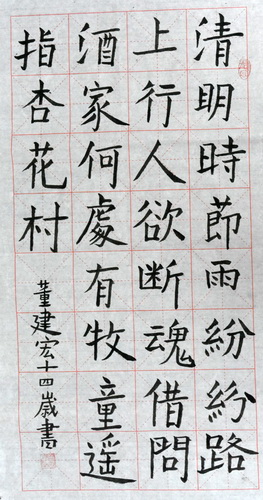 清明時節雨紛紛路
上行人欲断魂借問
酒家何處有牧童遥
指杏花村
董建宏十四歲書